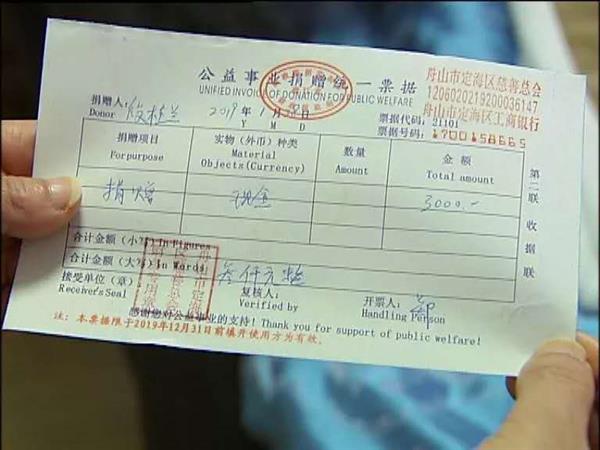 公益事业捐赠统一票据
UNIFIED INVOICE OF DONATION FOR PUBLIC WELFARE
舟山市定海区慈善总会
1206020219200036147
舟山市定海区工商银行
捐赠人
Donor
2019 年 1 月 日
Y M D
票据代码: 21101
票据号码: 1700158665
捐赠项目 实物（外币）种类 数量 金额
Forpurpose Material Objects(Currency) Amount Total amount
捐赠 现金 3000.-
合计金额（小写）In Figures
合计金额（大写）In Words 叁仟元整
接受单位（章） 复核人: 开票人:
Receiver's Seal Verified by Handling Person
感谢您对公益事业的支持! Thank you for support of public welfare!
注: 本票据限于2019年12月31日前填开使用方为有效。
第二联 收据联